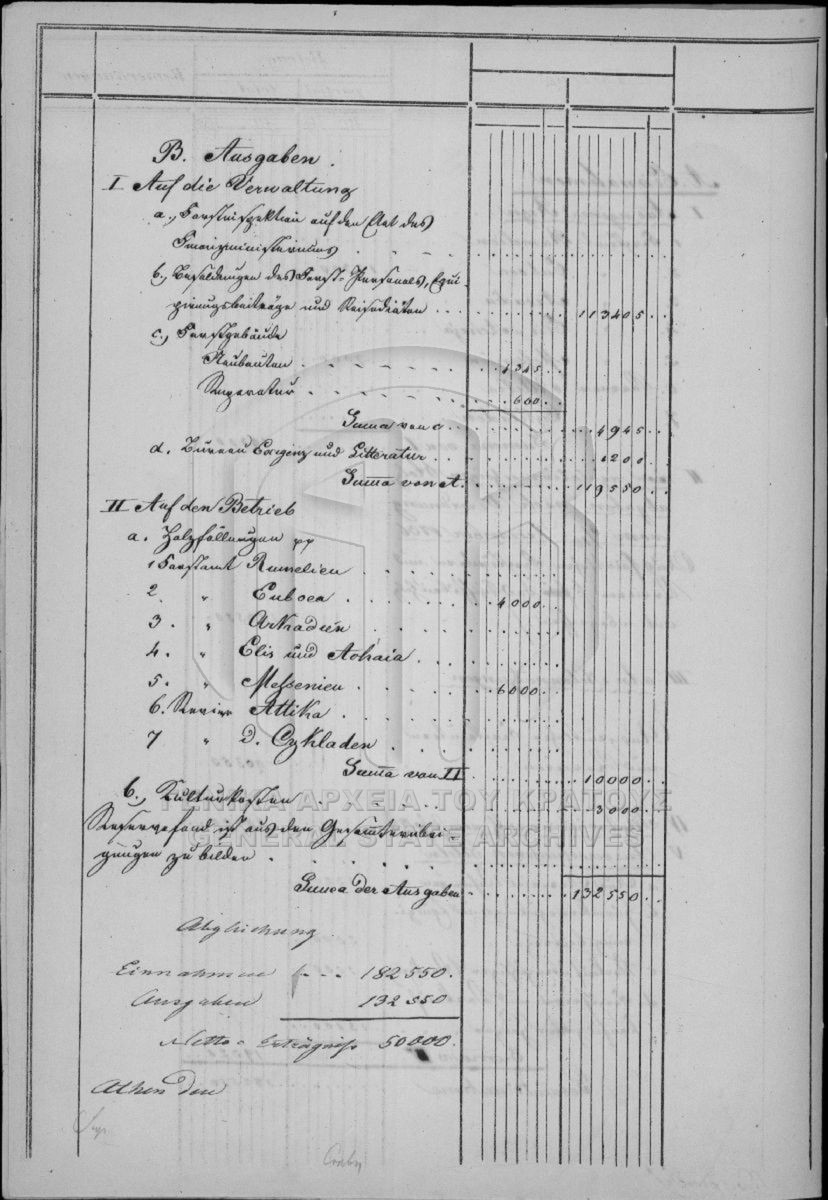 B. Ausgaben.
I Auf die Verwaltung
a., Forstinspektion auf den Etat des
Finanzministeriums . . .
b., Besoldungen des Forst-Personals, Equi-
pierungsbeiträge und Reisediäten . . . 113405
c., Forstgebäude
Neubauten . . . 4345
Reperatur . . . 600
Suma von c . . . 4945
d. Bureau Exigenz und Litteratur . . . 1200
Suma von A. . . . 119550
II Auf den Betrieb
a. Holzfällungen pp
1 Forstamt Rumelien . . .
2. " Euboea . . . 4000
3. " Arkadien . . .
4. " Elis und Achaia . . .
5. " Messenien . . . 6000
6. Revier Attika . . .
7 " D. Cykladen . . .
Suma von II . . . 10000
b., Kulturkosten . . . 3000
Reservefond ist aus den Gesamterübri-
gungen zu bilden . . .
Suma der Ausgaben . . . 132550
Abgleichung
Einnahmen . . . 182550.
Ausgaben 132550
Netto-Erträgniß 50000.
Athen den
ΓΕΝΙΚΑ ΑΡΧΕΙΑ ΤΟΥ ΚΡΑΤΟΥΣ
GENERAL STATE ARCHIVES